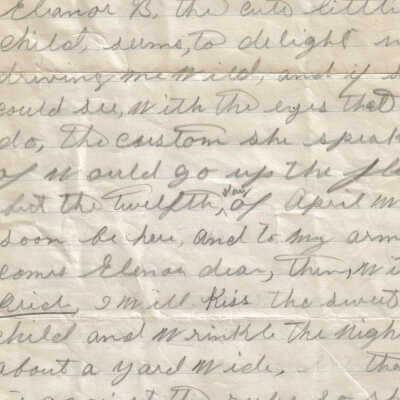 Elanor B. the cute little
child, seems, to delight
driving me wild, and if
could see, with the eyes that
do, the custom she speak
of would go up the fl
but the twelfth, day of April
soon be here, and to my arm
comes Elenor dear, then, wi
I will Kiss the sweet
child and wrinkle the nigh
about a yard wide,